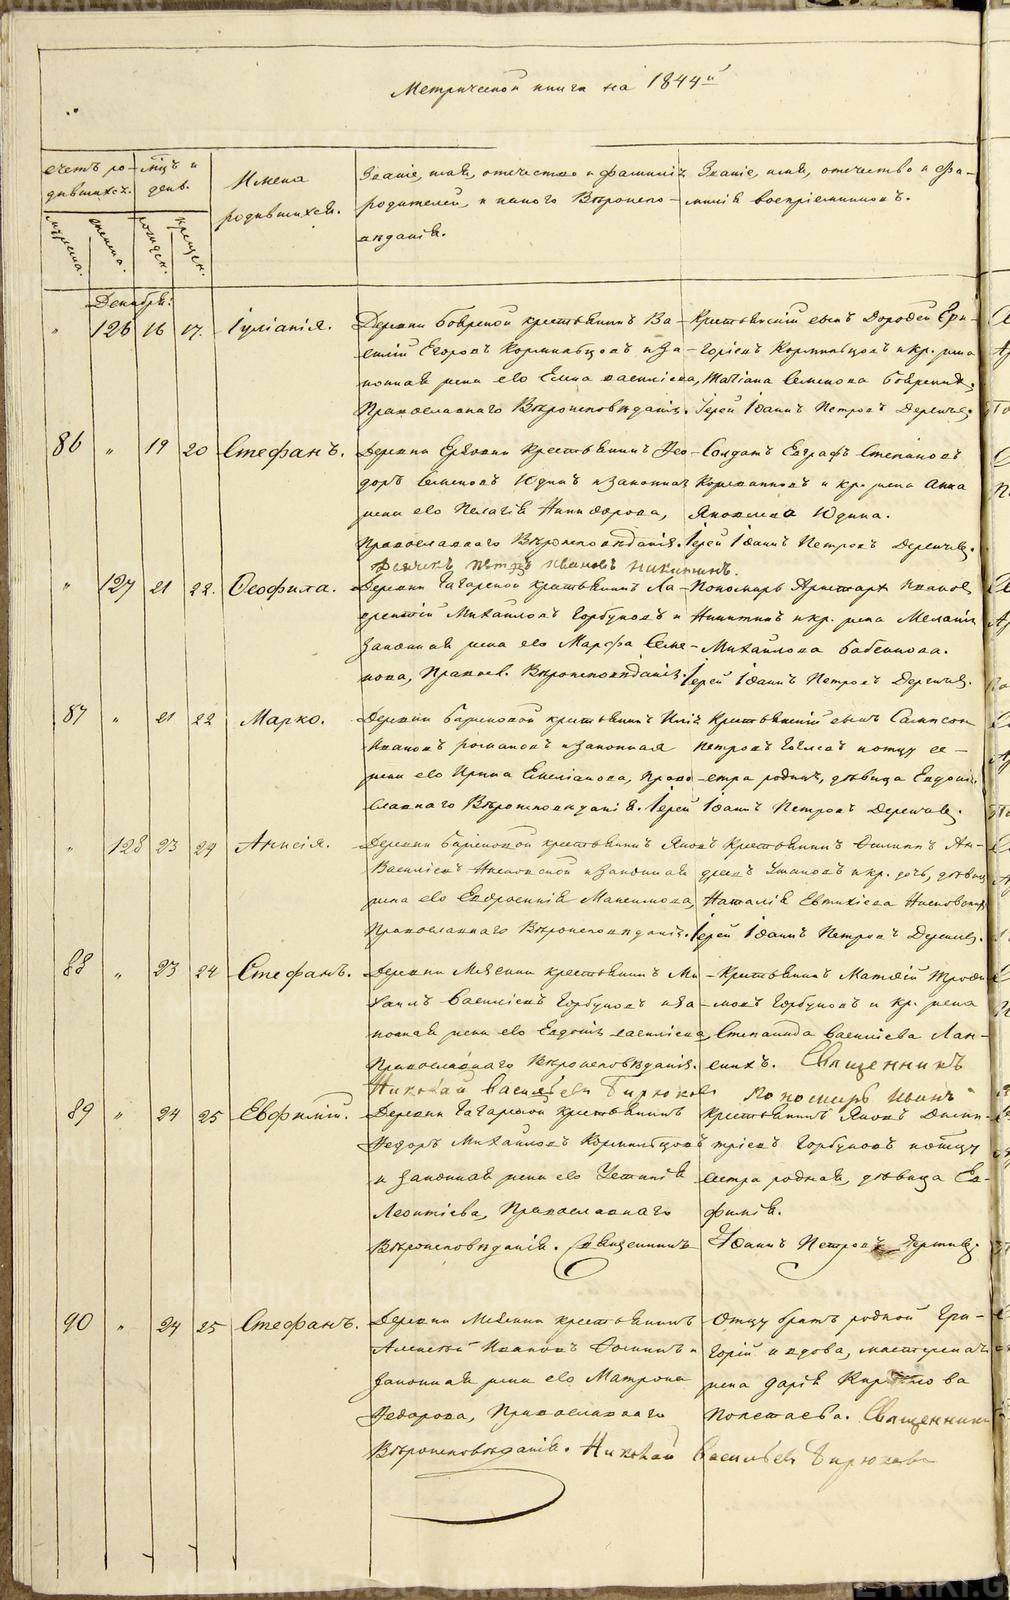 Метрической книги на 1844й
счетъ ро-
дившихся.
мцъ и
день.
Имена
родившихся.
Званіе, имя, отечество и фамилія
родителей, и какого Вѣроиспо-
вѣданія.
Званіе, имя, отечество и фа-
милія воспріемниковъ.
мужеска.
женска.
рожден.
крещен.
Декабря:
" 126 16 17. Іуліанія.
Деревни Боярской крестьянинъ Ва-
силій Егоровъ Кормильцовъ и за-
конная жена его Елена васильева,
Православнаго Вѣроисповѣданія.
Крестьянскій сынъ Дорофей Гри-
горьевъ Кормильцовъ и кр. жена
Татіана Семенова
Іерей Іоаннъ Петровъ
86 " 19 20 Стефанъ.
Деревни крестьянинъ Ѳео-
доръ Семеновъ Юдинъ и законная
жена его Пелагія Никифорова,
Православнаго Вѣроисповѣданія.
Солдатъ Евграфъ Степановъ
и кр. жена Анна
Яковлева Юдина.
Іерей Іоаннъ Петровъ
Дьячекъ Петръ Ивановъ Никитинъ.
" 127 21 22. Ѳеофила.
Деревни Татарской крестьянинъ Ла-
врентій Михайловъ Горбуновъ и
законная жена его Марфа Семе-
нова, Правосл. Вѣроисповѣданія.
Пономарь Аристархъ Иванов
Никитинъ и кр. жена Меланія
Михайлова Бабенкова.
Іерей Іоаннъ Петровъ
87 " 21 22 Марко.
Деревни крестьянинъ Илія
Ивановъ Романовъ и законная
жена его Ирина Емеліанова, Право-
славнаго Вѣроисповѣданія.
Крестьянскій сынъ Сампсон
Петровъ и отцу се-
стра родная, дѣвица Евдокія.
Іерей Іоаннъ Петровъ
" 128 23 24 Анисія.
Деревни крестьянинъ Яковъ
Васильевъ и законная
жена его Евфросинія Максимова,
Православнаго Вѣроисповѣданія.
Крестьянинъ Филиппъ Ан-
дреевъ Ушаковъ и кр. дочь, дѣвица
Наталія Евтихіева
Іерей Іоаннъ Петровъ
88 " 23 24 Стефанъ.
Деревни крестьянинъ Ми-
хаилъ Васильевъ Горбуновъ и за-
конная жена его Евдокія васильева,
Православнаго Вѣроисповѣданія.
Крестьянинъ Матѳій Трофи-
мовъ Горбуновъ и кр. жена
Степанида Васильева Лан-
скихъ. Священникъ
Николай Васильевъ Бирюковъ Пономарь Иванъ
89 " 24 25 Евфимій.
Деревни Татарской крестьянинъ
Ѳедоръ Михайловъ Кормильцовъ
и законная жена его Устинія
Леонтіева, Православнаго
Вѣроисповѣданія. Священникъ
Крестьянинъ Яковъ Дими-
тріевъ Горбуновъ и отцу
сестра родная, дѣвица Ев-
фимія.
Іоаннъ Петровъ
90 " 24 25 Стефанъ.
Деревни крестьянинъ
Алексѣй Ивановъ Ѳоминъ и
законная жена его Матрона
Ѳедорова, Православнаго
Вѣроисповѣданія. Николай Васильевъ Бирюковъ
Отцу братъ родной Гри-
горій и вдова, мастерская
жена Дарія
Полетаева. Священникъ